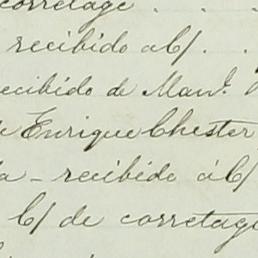 corretage . . .
recibido a C/. .
recibido de Man.l
de Enrique Chester
a - recibido á C/
C/ de corretage